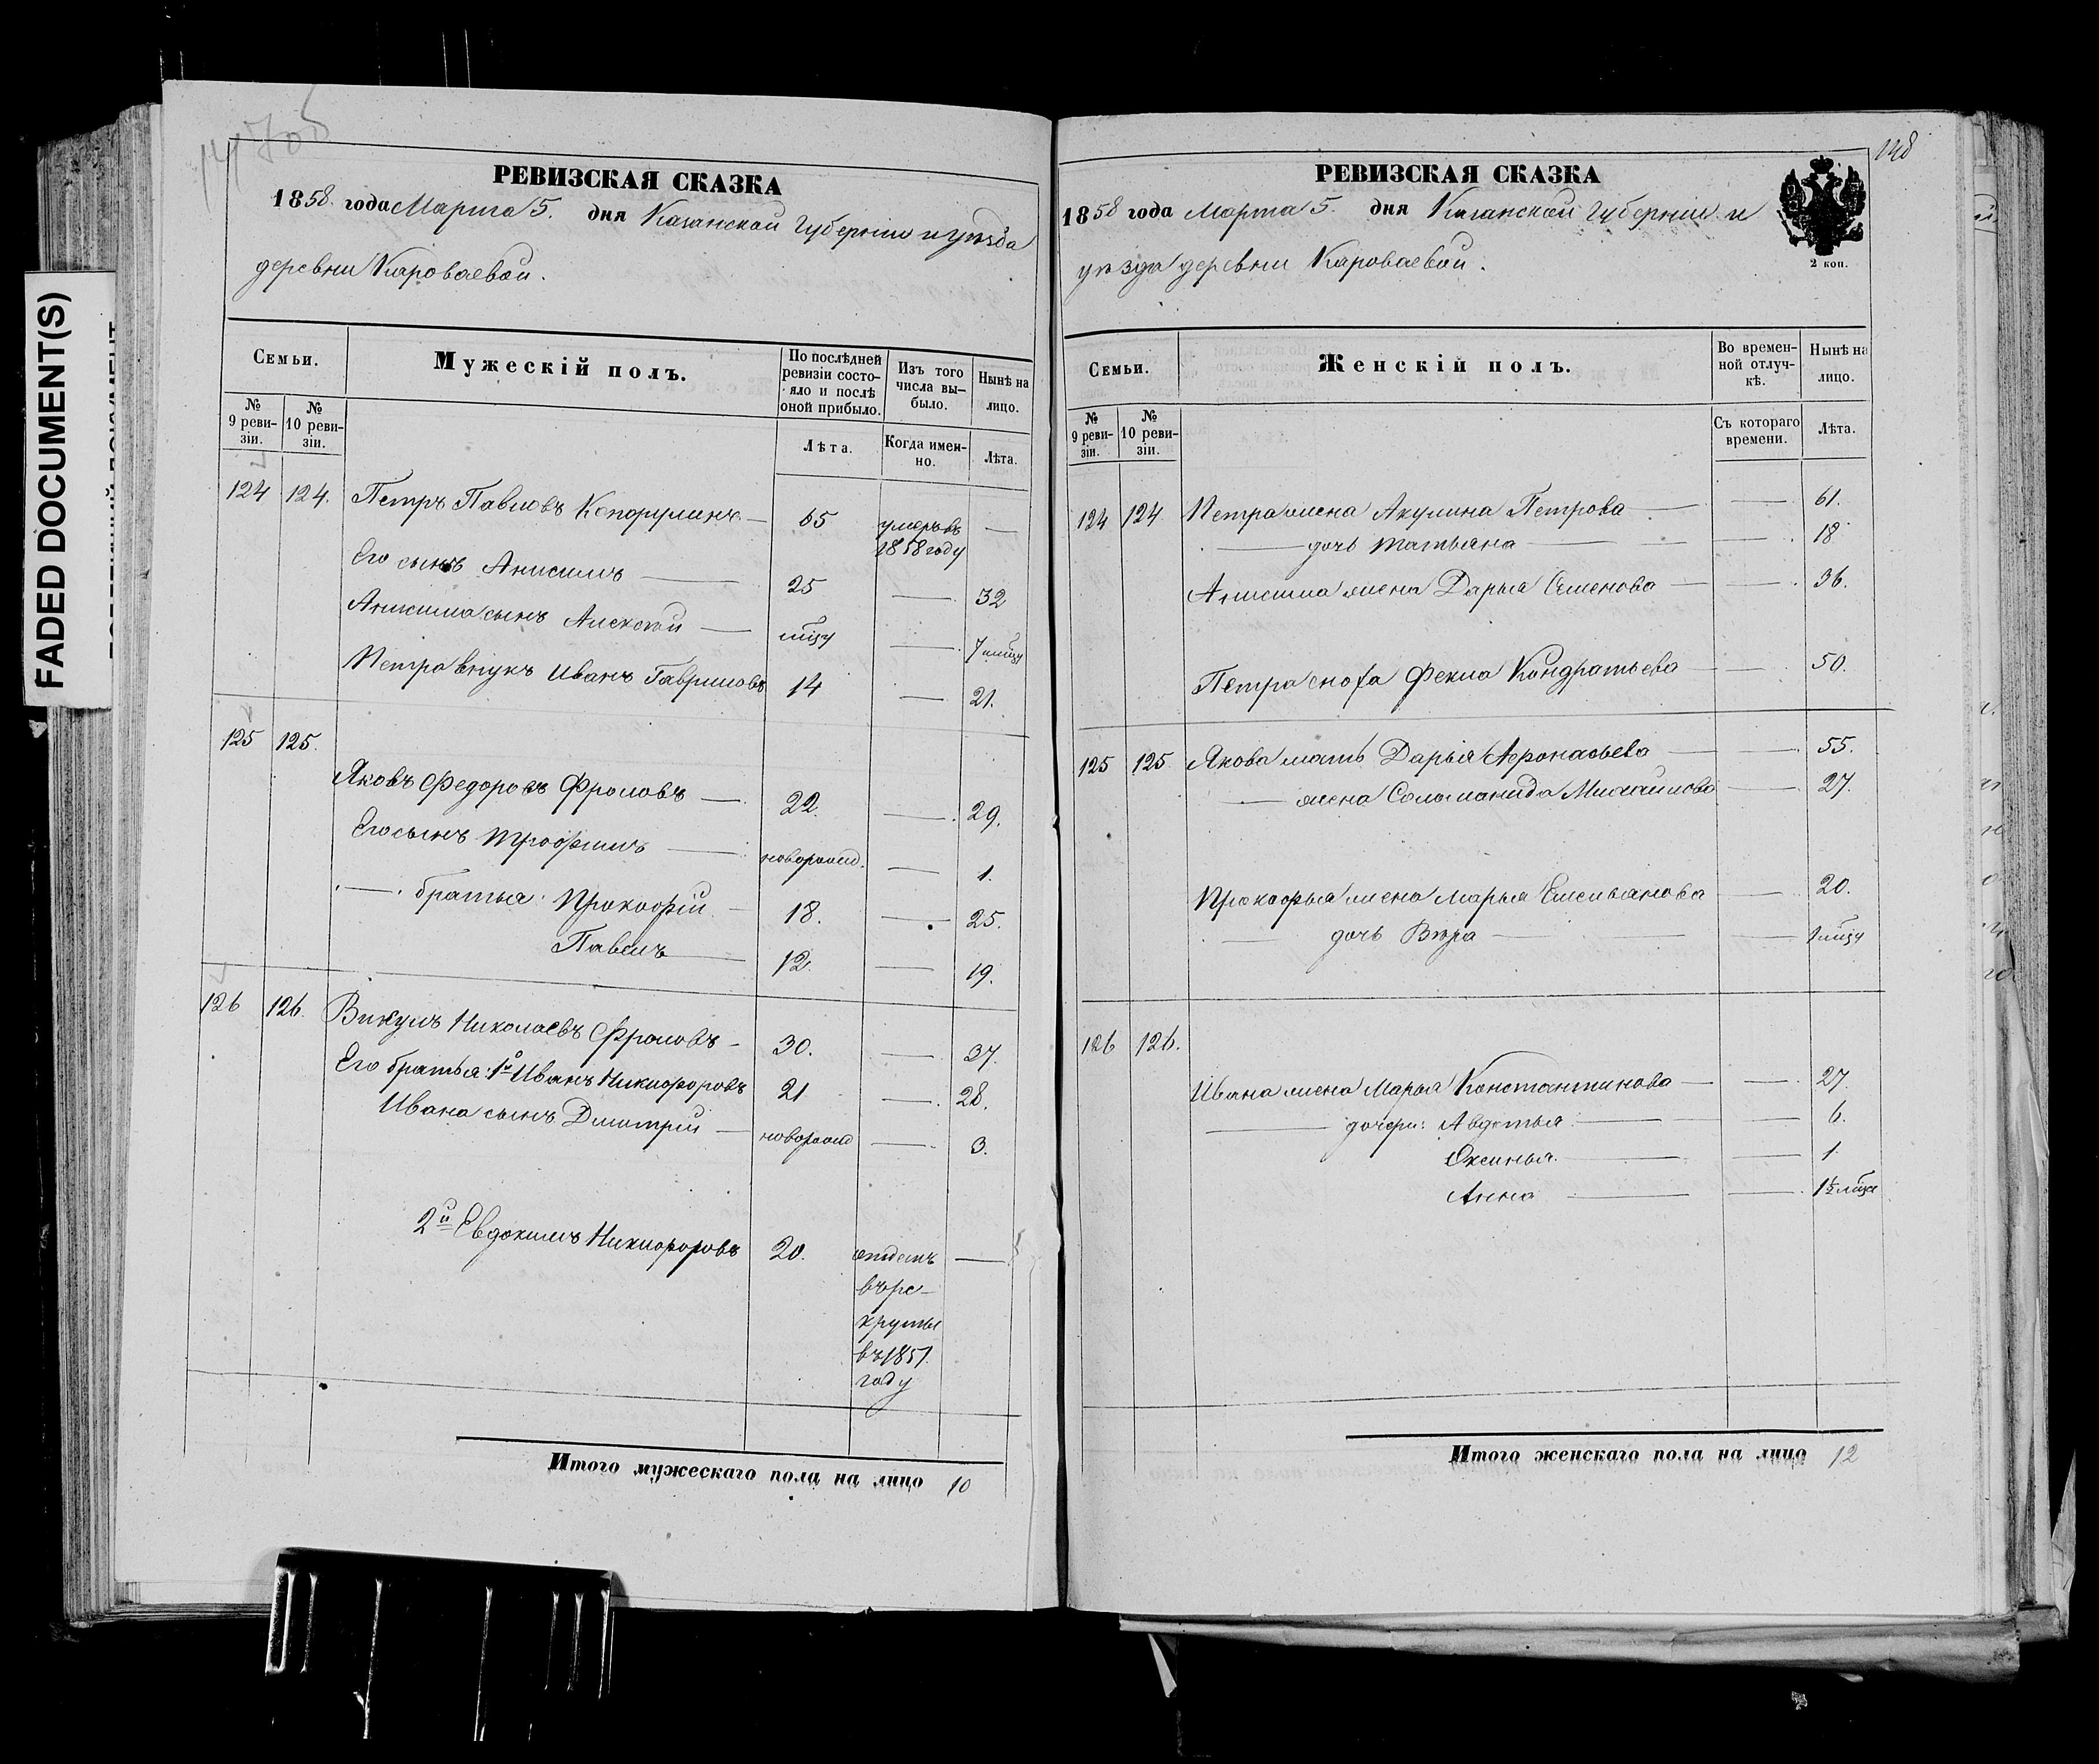 FADED DOCUMENT(S)
РЕВИЗСКАЯ СКАЗКА
1858 года Марта 5. дня Казанской Губернiи и уѣзда
деревни Кароваевой.
Семьи.
Мужескiй полъ.
По послѣдней ревизiи состояло и послѣ оной прибыло.
Изъ того числа выбыло.
Нынѣ на лицо.
№ 9 ревизiи.
№ 10 ревизiи.
Лѣта.
Когда именно.
Лѣта.
124 124. Петръ Павловъ — 65 умеръ въ 1858 году —
Его сынъ Анисимъ — 25 — 32
Анисима сынъ Алексѣй — —
Петра внукъ Иванъ Гавриловъ 14 — 21.
125 125.
Яковъ Федоровъ Фроловъ — 22. — 29.
Его сынъ Трофимъ — поворожд. — 1.
— братья: Прокофiй — 18. — 25.
Павелъ — 12. — 19.
126 126. Викулъ Николаевъ Фроловъ — 30. — 37.
Его братья: 1й Иванъ Никифоровъ 21 — 28.
Ивана сынъ Дмитрiй — новорожд — 3.
2й Евдокимъ Никифоровъ 20. отданъ —
въ ре-
круты
въ 1851.
году
Итого мужескаго пола на лицо 10
148
РЕВИЗСКАЯ СКАЗКА
1858 года Марта 5. дня Казанской Губернiи и
уѣзда деревни Кароваевой.
2 коп.
Семьи.
Женскiй полъ.
Во временной отлучкѣ.
Нынѣ на лицо.
№ 9 ревизiи.
№ 10 ревизiи.
Съ котораго времени.
Лѣта.
124 124. Петра жена Акулина Петрова — — 61.
— дочь Татьяна — — 18
Анисима жена Дарья Семенова — — 36.
Петра сноха Фекла Кондратьева — — 50.
125 125 Якова мать Дарья Афонасьева — — 55.
— жена Соломанида Михайлова — 27.
Прокофья жена Марья Емельянова — 20.
— дочь Вѣра — —
126 126.
Ивана жена Марья Константинова — — 27.
— дочери: Авдотья — — 6.
Оксинья. — — 1
Анна — — 1½ мѣця
Итого женскаго пола на лицо 12